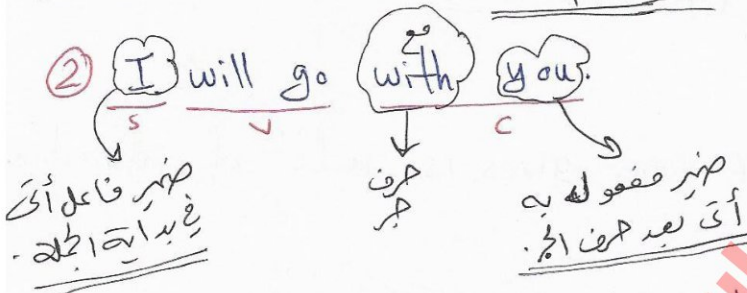 مع
② I will go with you.
S V C
ضمير فاعل أتى
في بداية الجملة.
حرف
جر
ضمير مفعول به
أتى بعد حرف الجر.